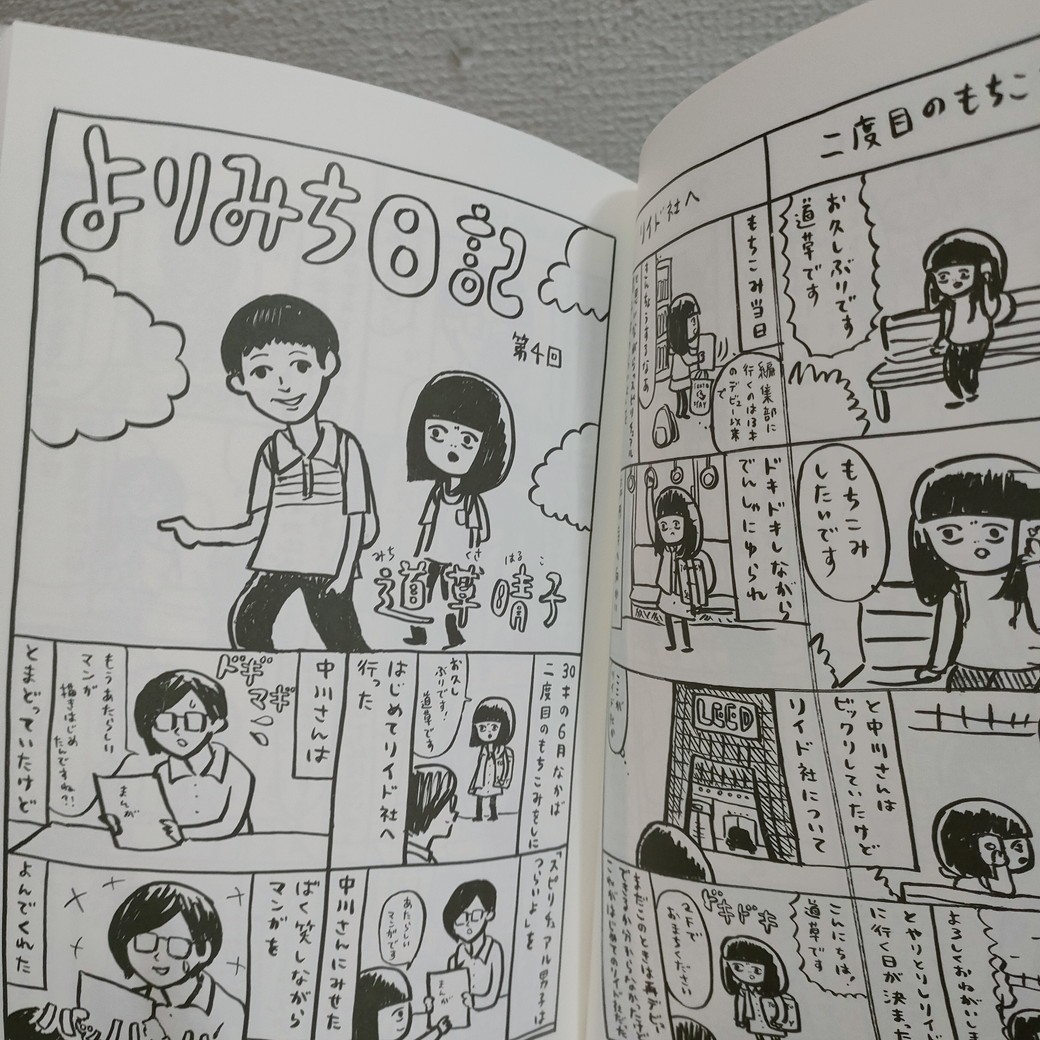 よりみち日記
第4回
みち くさ はる こ
道草晴子
30才の6月なかば
二度目のもちこみをしに
お久し
ぶりです!
道草です
はじめてリイド社へ
行った
中川さんは
ドギ
マギ
まんが
もうあたらしい
マンガ
描きはじめ
たんですね?!
とまどっていたけど
「スピリチュアル男子は
つらいよ」を
あたらしい
マンガです
まんが
中川さんにみせた
ばく笑しながら
マンガを
よんでくれた
二度目のもちこ
お久しぶりです
道草です
リイド社へ
もちこみ当日
編集部に
行くのは13才
のデビュー以来
で
もちこみ
したいです
ドキドキしながら
でんしゃにゆられ
と中川さんは
ビックリしていたけど
リイド社について
LEED
よろしくおねがいしま
とやりとりしリイド
に行く日が決まった
こんにちは!
道草です
ドキドキ
2Fで
おまちください